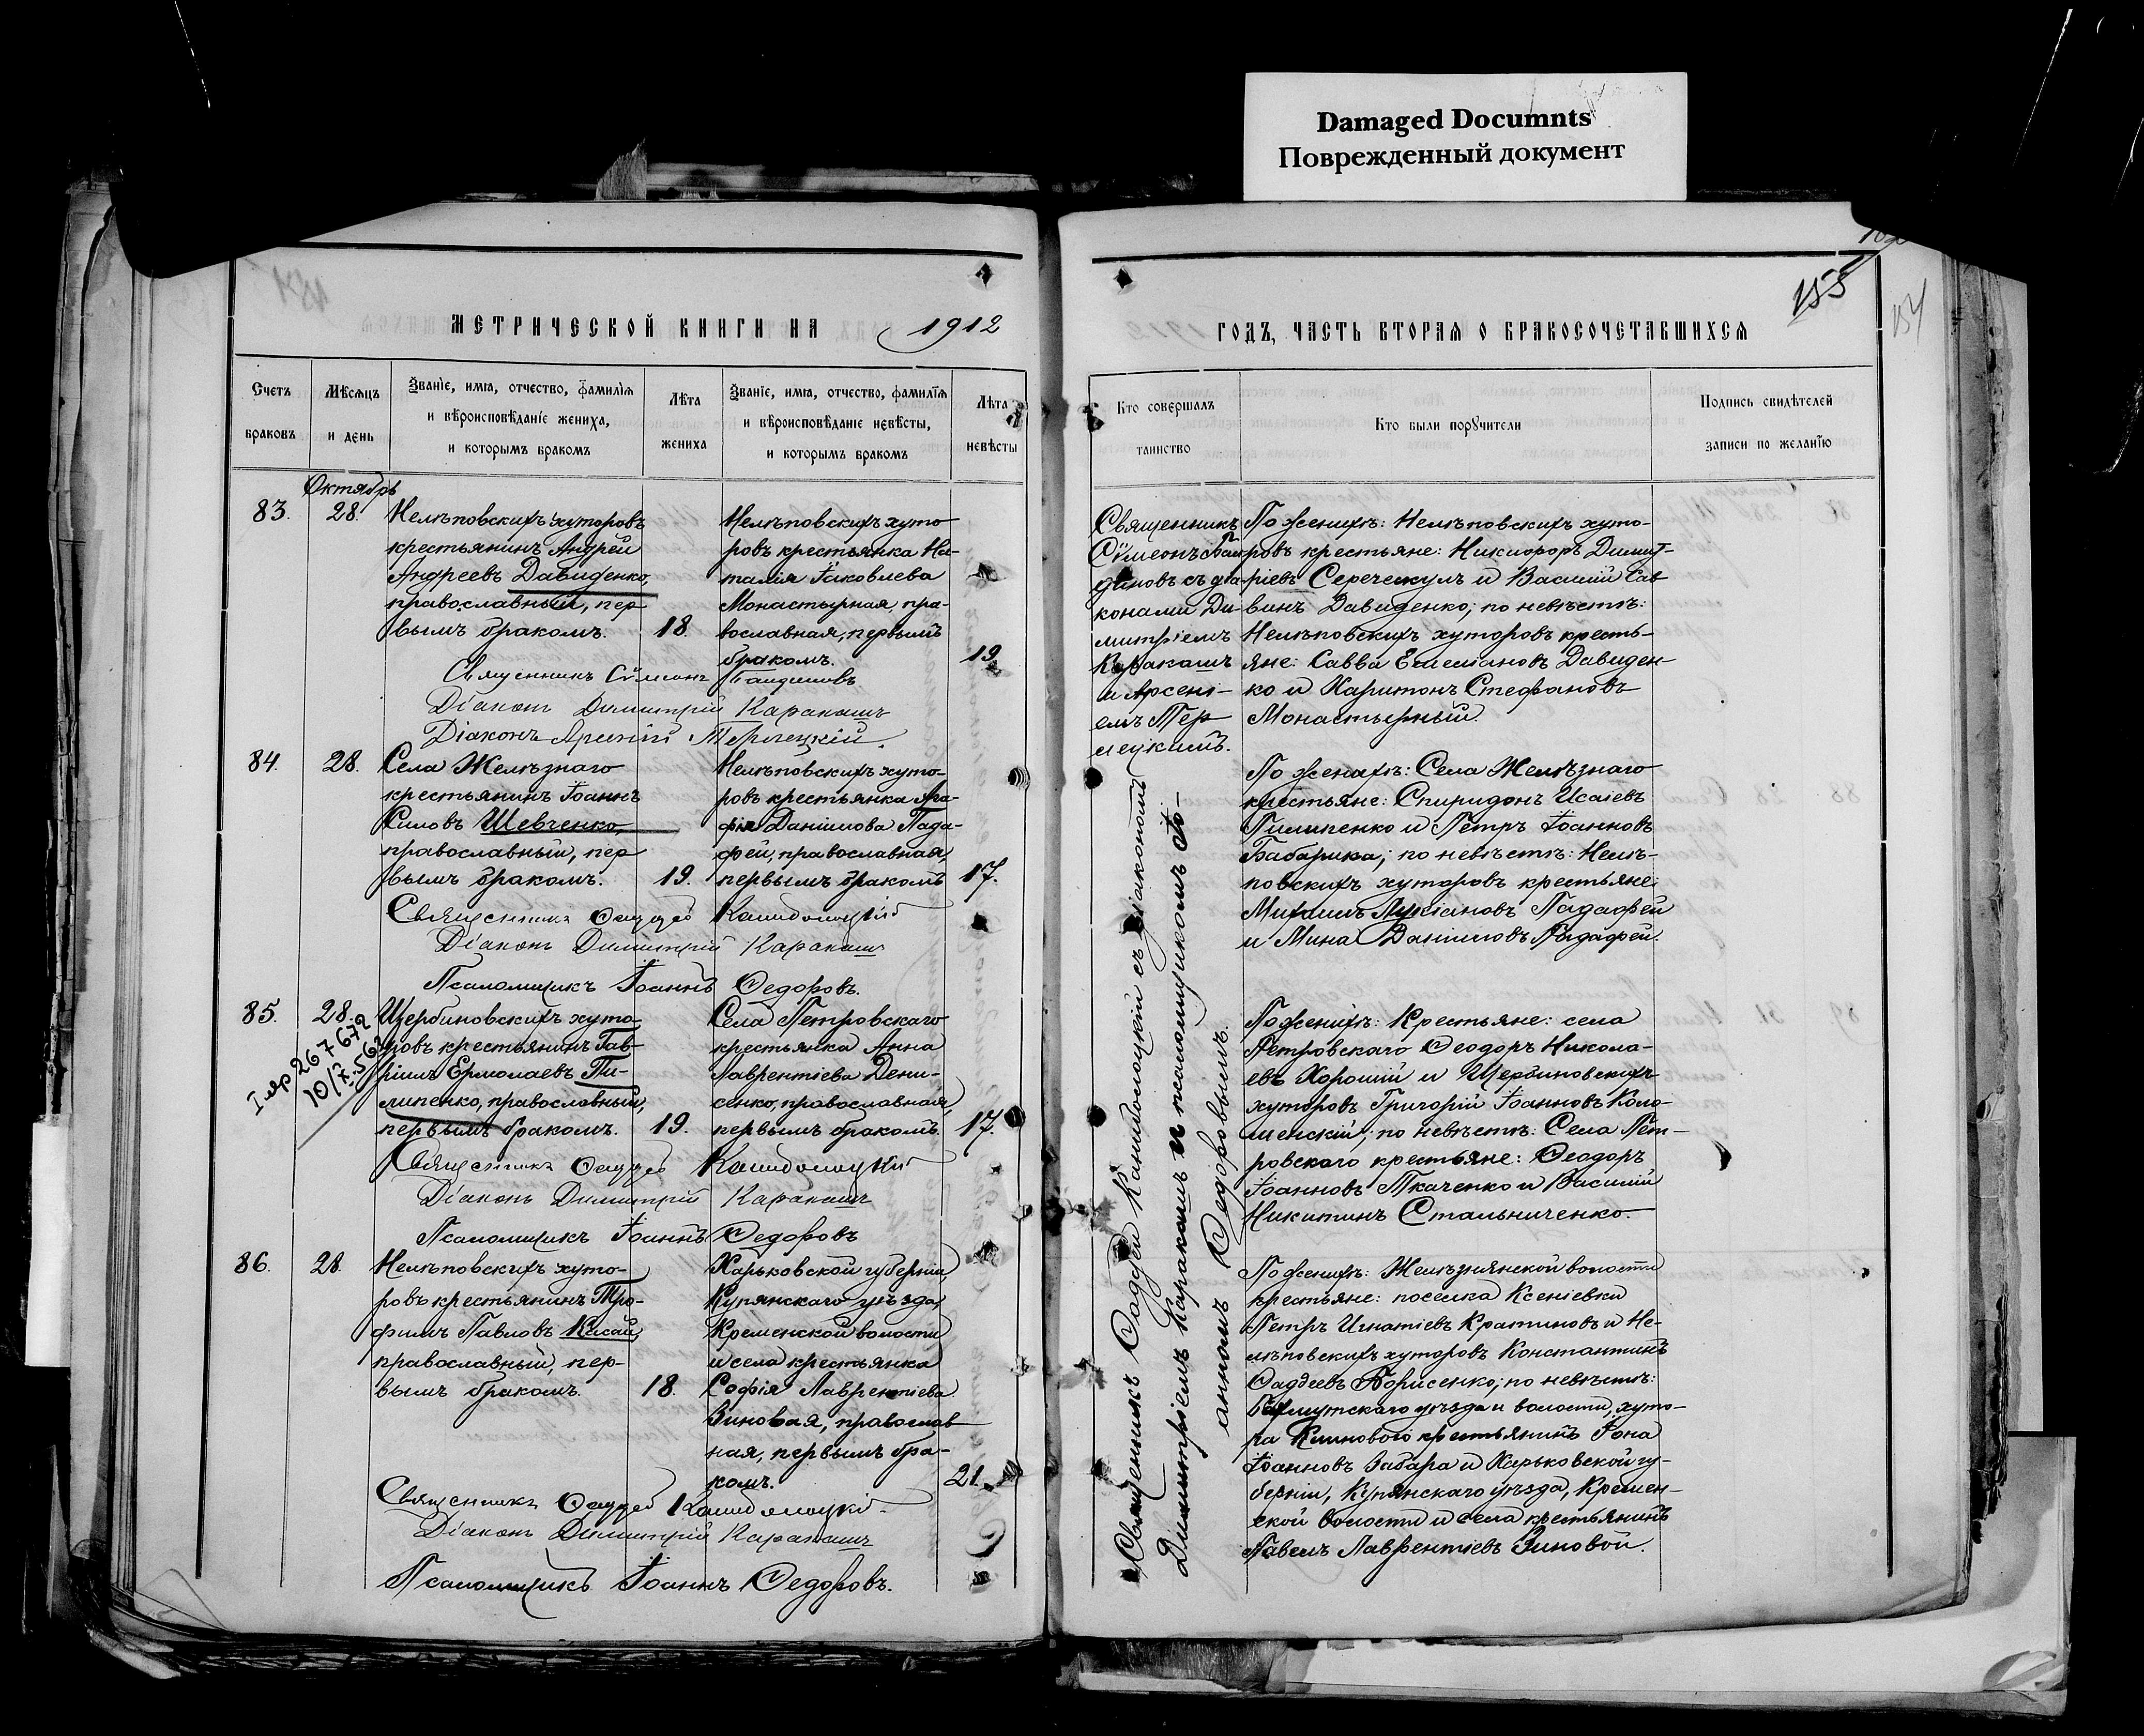 Damaged Documnts
Поврежденный документ
155
МЕТРИЧЕСКОЙ КНИГИ НА 1912
ГОДЪ, ЧАСТЬ ВТОРАЯ О БРАКОСОЧЕТАВШИХСЯ
Счетъ браковъ
Мѣсяцъ и день
Званіе, имя, отчество, фамилія
и вѣроисповѣданіе жениха,
и которымъ бракомъ
Лѣта жениха
Званіе, имя, отчество, фамилія
и вѣроисповѣданіе невѣсты,
и которымъ бракомъ
Лѣта невѣсты
Кто совершалъ таинство
Кто были поручители
Подпись свидѣтелей
записи по желанію
Октябрь
83.
28.
Нелѣповскихъ хуторовъ
крестьянинъ Андрей
Андреевъ Давиденко,
православный, пер
вымъ бракомъ.
18.
Нелѣповскихъ хуто
ровъ крестьянка На-
талія Іаковлева
Монастырная, пра-
вославная, первымъ
бракомъ.
19.
Священникъ Сѵмеонъ
Діаконъ Димитрій Каракашъ
Діаконъ Арсеній Терлецкій.
84.
28.
Села Желѣзнаго
крестьянинъ Іоаннъ
Силовъ Шевченко,
православный, пер
вымъ бракомъ.
19.
Нелѣповскихъ хуто-
ровъ крестьянка Ага-
фія Даніилова Пада-
фей, православная,
первымъ бракомъ
17.
Священникъ Ѳаддей
Діаконъ Димитрій Каракашъ
Псаломщикъ Іоаннъ Ѳедоровъ.
85.
28.
I яр 267672
10/7.56
Щербиновскихъ хуто-
ровъ крестьянинъ Гав-
ріилъ Ермолаевъ Пи-
липенко, православный,
первымъ бракомъ.
19.
Села Петровскаго
крестьянка Анна
Лаврентіева Дени-
сенко, православная,
первымъ бракомъ.
17.
Священникъ Ѳаддей
Діаконъ Димитрій Каракашъ
Псаломщикъ Іоаннъ Ѳедоровъ
86.
28.
Нелѣповскихъ хуто-
ровъ крестьянинъ Тро-
фимъ Павловъ Кисай,
православный, пер-
вымъ бракомъ.
18.
Харьковской губерніи,
Купянскаго уѣзда,
Кременской волости
и села крестьянка
Софія Лаврентіева
Зиновая, православ
ная, первымъ бра-
комъ.
21.
Священникъ Ѳаддей
Діаконъ Димитрій Каракашъ
Псаломщикъ Іоаннъ Ѳедоровъ.
Священникъ
Сѵмеонъ
съ діа-
конами Ди-
митріемъ
Каракашъ
и Арсені-
емъ Тер
лецкимъ.
Священникъ Ѳаддей съ діакономъ
Димитріемъ Каракашъ и псаломщикомъ Іо-
анномъ Ѳедоровымъ.
По женихѣ: Нелѣповскихъ хуто-
ровъ крестьяне: Никифоръ Димит-
ріевъ и Василій Сав
винъ Давиденко; по невѣстѣ:
Нелѣповскихъ хуторовъ кресть-
яне: Савва Емеліановъ Давиден-
ко и Харитонъ Стефановъ
Монастырный.
По женихѣ: Села Желѣзнаго
крестьяне: Спиридонъ Исаіевъ
Пилипенко и Петръ Іоанновъ
Бабарика; по невѣстѣ: Нелѣ-
повскихъ хуторовъ крестьяне:
Михаилъ Лукіановъ Падафей
и Мина Даніиловъ Падафей.
По женихѣ: Крестьяне: села
Петровскаго Ѳеодоръ Никола-
евъ Хорошій и Щербиновскихъ
хуторовъ Григорій Іоанновъ Коло-
менскій; по невѣстѣ: Села Пет-
ровскаго крестьяне: Ѳеодоръ
Іоанновъ Ткаченко и Василій
Никитинъ Стальниченко.
По женихѣ: Желѣзнянской волости
крестьяне: поселка Ксеніевки
Петръ Игнатіевъ Кратиновъ и Не-
лѣповскихъ хуторовъ Константинъ
Ѳаддеевъ Борисенко; по невѣстѣ:
Бахмутскаго уѣзда и волости, хуто-
ра Клиноваго крестьянинъ Іона
Іоанновъ Забара и Харьковской гу-
берніи, Купянскаго уѣзда, Кремен-
ской волости и села крестьянинъ
Павелъ Лаврентіевъ Зиновой.